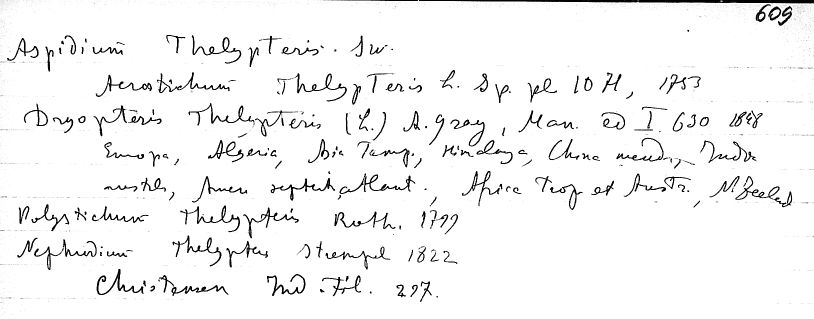 609
Aspidium Thelypteris. Sw.
Acrostichum Thelypteris L. Sp. pl 1071, 1753
Dryopteris Thelypteris (L.) A. Gray, Man. ed I 630 1848
Europa, Algeria, Asia Temp., Himalaya, China merid., India
austrl., Amer septentr, atlant., Africa Trop et Austr., N Zeeland
Polystichum Thelypteris Roth. 1799
Nephrodium Thelypteris Strempel 1822
Christensen Ind. Fil. 297.